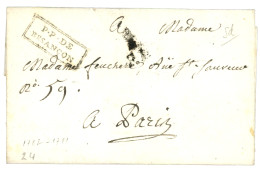 P.P. DE
BESANÇON
A Madame
Madame fouchere, Rüe St. Sauveur
No. 59.
A Paris
24